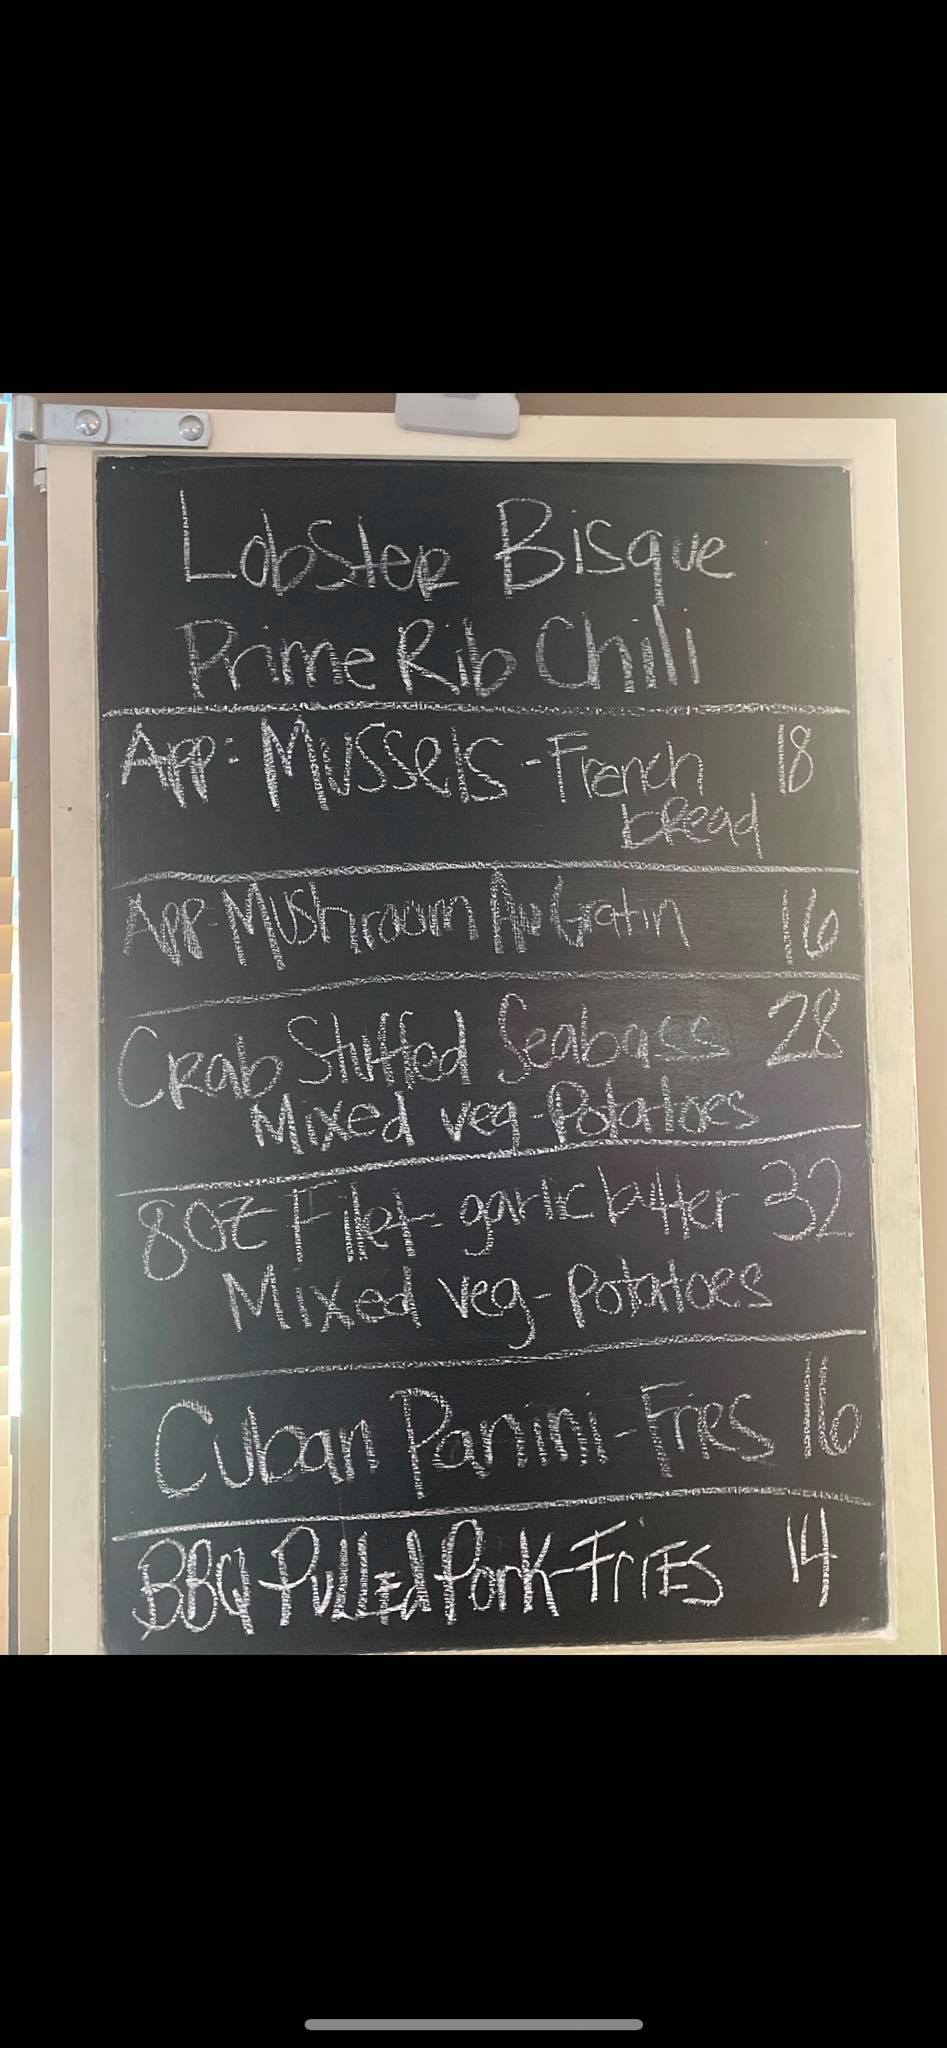 Lobster Bisque
Prime Rib Chili
App: Mussels - French 18
bread
App- Mushroom Au Gratin 16
Crab Stuffed Seabass 28
Mixed veg - Potatoes
8oz Filet - garlic butter 32
Mixed veg - Potatoes
Cuban Panini - Fries 16
BBQ Pulled Pork - Fries 14